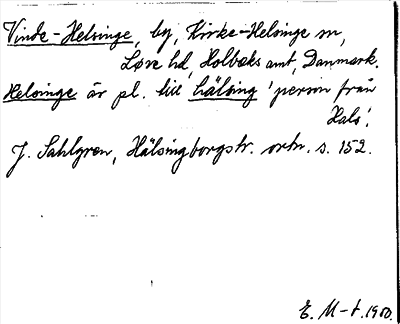 Vinde-Helsinge, by, Kirke-Helsinge sn,
Løve hd, Holbæks amt, Danmark.
Helsinge är pl. till hälsing 'person från
Hals'.
J. Sahlgren, Hälsingborgstr. ortn. s. 152.
E. M-t. 1950.